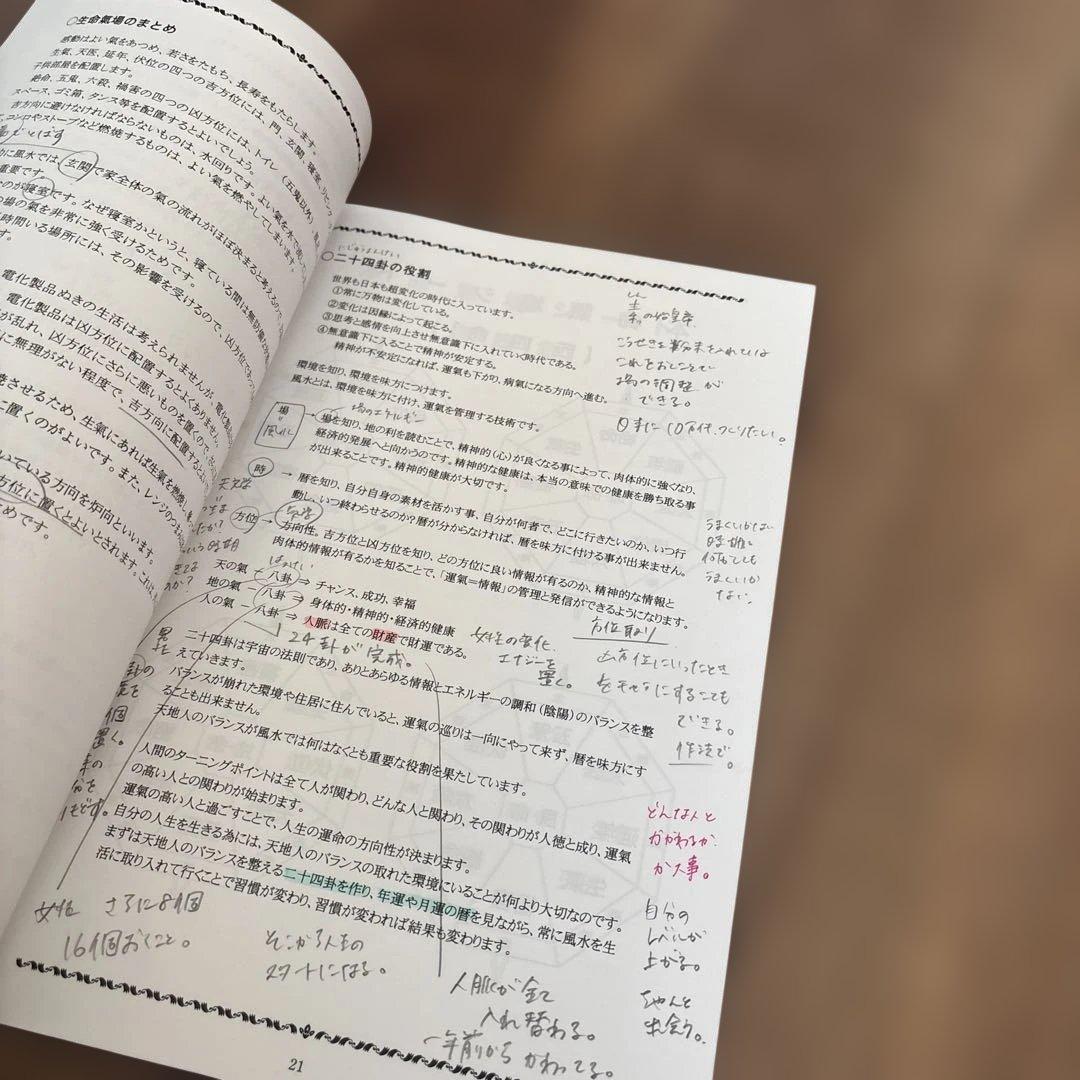 ○生命氣場のまとめ
感動はよい氣をあつめ、若さをたもち、長寿をもたらします。
生氣、天医、延年、伏位の四つの吉方位には、門、玄関、寝室、リビング、
子供部屋を配置します。
絶命、五鬼、六殺、禍害の四つの凶方位には、トイレ（五鬼以外）、
スペース、ゴミ箱、タンス等を配置するとよいでしょう。
吉方向に避けなければならないものは、水回りです。よい氣を水で流し
コンロやストーブなど燃焼するものは、よい氣を燃やしてしまいます。
に風水では玄関で家全体の氣の流れがほぼ決まると考えるので、
重要です。
のが寝室です。なぜ寝室かというと、寝ている間は無防備
の場の氣を非常に強く受けるためです。
時間いる場所には、その影響を受けるので、凶方位
す。
電化製品ぬきの生活は考えられませんが、電化製品
電化製品は凶方位に配置するとよくありません。
が乱れ、凶方位にさらに悪いものを置くので、
に無理がない程度で、吉方向に配置するとよい
させるため、生氣にあれば生氣を燃焼し、
に置くのがよいです。また、レンジのつまみ
いている方向を炉向といいます。
方位に置くとよいとされます。これは、
めです。
にじゅうよんけい
○二十四卦の役割
世界も日本も超変化の時代に入っています。
①常に万物は変化している。
②変化は因縁によって起こる。
③思考と感情を向上させ無意識下に入れていく時代である。
④無意識下に入ることで精神が安定する。
精神が不安定になれば、運氣も下がり、病氣になる方向へ進む。
環境を知り、環境を味方につけます。
風水とは、環境を味方に付け、運氣を管理する技術です。
場のエネルギー
場
風水
→ 場を知り、地の利を読むことで、精神的（心）が良くなる事によって、肉体的に強くなり、
経済的発展へと向かうのです。精神的な健康は、本当の意味での健康を勝ち取る事
が出来ることです。精神的健康が大切です。
時
→ 暦を知り、自分自身の素材を活かす事、自分が何者で、どこに行きたいのか、いつ行
動し、いつ終わらせるのか？暦が分からなければ、暦を味方に付ける事が出来ません。
方位
→ 方向性。吉方位と凶方位を知り、どの方位に良い情報が有るのか、精神的な情報と
肉体的情報が有るかを知ることで、「運氣＝情報」の管理と発信ができるようになります。
天の氣 － 八卦 ⇒ チャンス、成功、幸福
地の氣 － 八卦 ⇒ 身体的・精神的・経済的健康
人の氣 － 八卦 ⇒ 人脈は全ての財産で財運である。
24卦が完成。
二十四卦は宇宙の法則であり、ありとあらゆる情報とエネルギーの調和（陰陽）のバランスを整
えていきます。
バランスが崩れた環境や住居に住んでいると、運氣の巡りは一向にやって来ず、暦を味方にす
ることも出来ません。
天地人のバランスが風水では何はなくとも重要な役割を果たしています。
人間のターニングポイントは全て人が関わり、どんな人と関わり、その関わりが人徳と成り、運氣
の高い人との関わりが始まります。
運氣の高い人と過ごすことで、人生の運命の方向性が決まります。
自分の人生を生きる為には、天地人のバランスの取れた環境にいることが何より大切なのです。
まずは天地人のバランスを整える二十四卦を作り、年運や月運の暦を見ながら、常に風水を生
活に取り入れて行くことで習慣が変わり、習慣が変われば結果も変わります。
これをおくことで
場の調整が
できる。
日本に10万代つくりたい。
うまくいかない
時期に
何をしても
うまくいか
ない。
女性の変化
エナジーを
置く。
方位取り
吉方位にいったとき
できる。
作法で。
どんな人と
かかわるか
が大事。
自分の
レベルが
上がる。
ちゃんと
出会う。
女性 さらに8個
16個おくこと。
そこから人生の
スタートになる。
人脈が全て
入れ替わる。
一年前から かわってる。
21